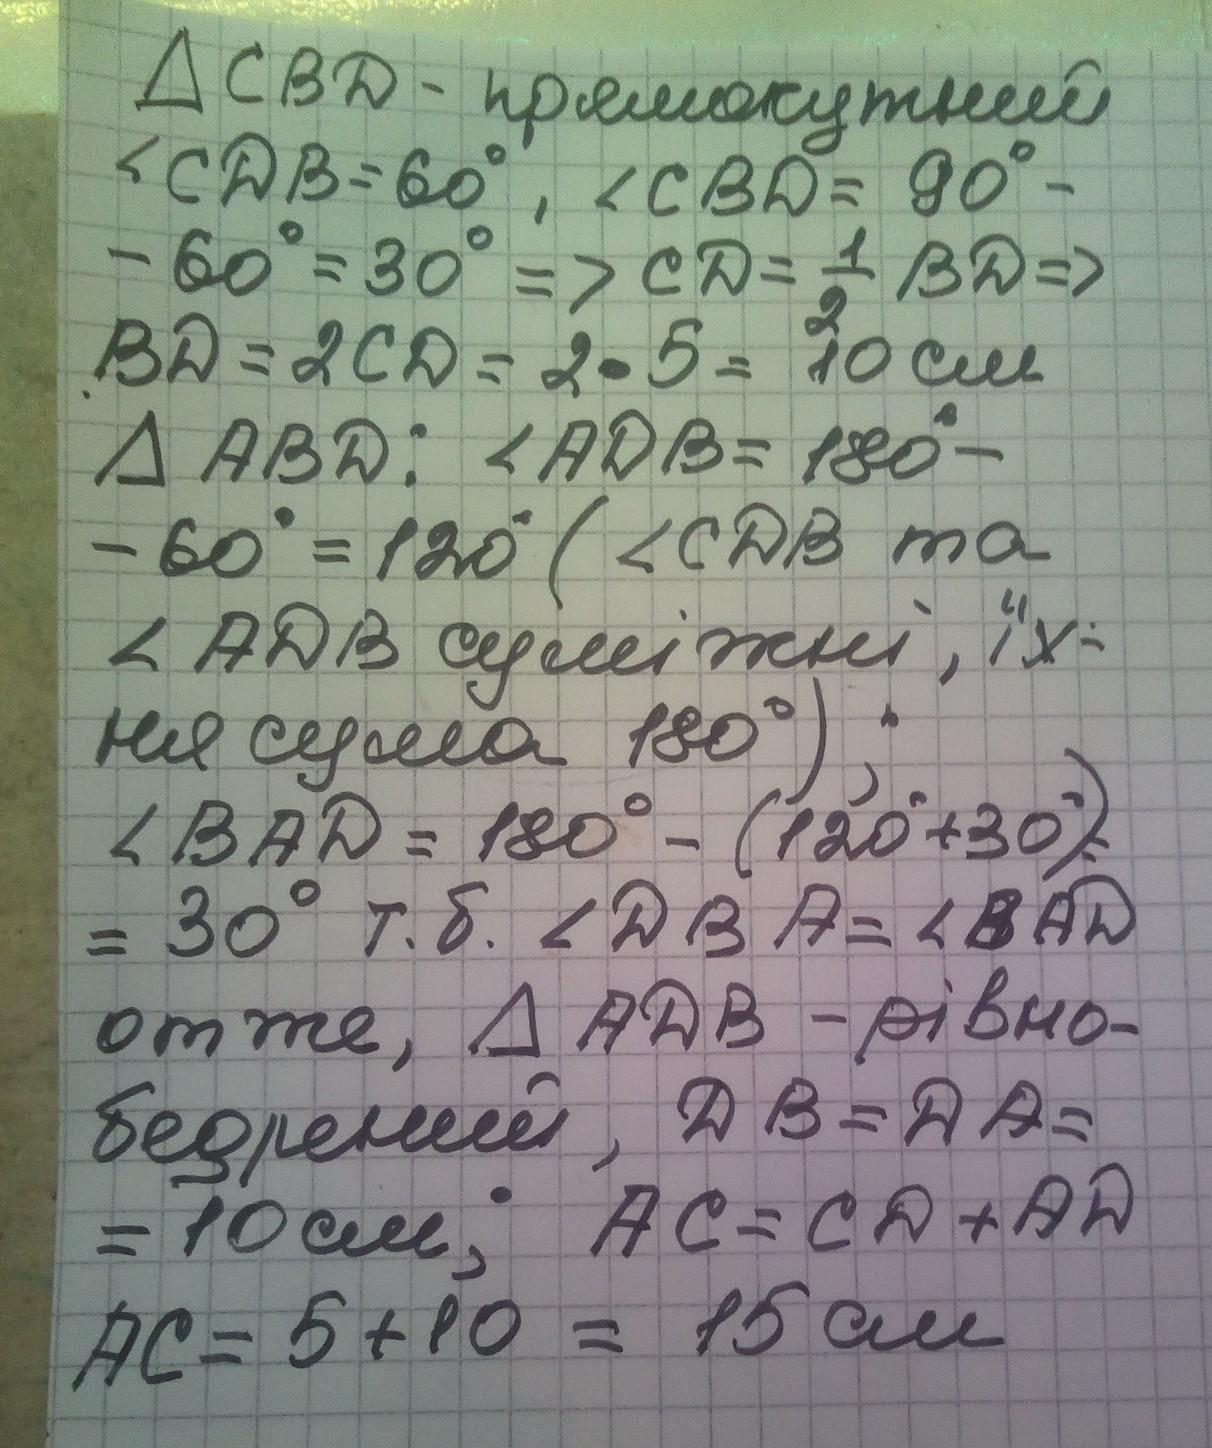 Δ CBD - прямокутний
<CDB=60°, <CBD= 90° -
- 60° = 30° => CD= 1/2 BD=>
BD = 2CD = 2•5 = 10 см
Δ ABD: <ADB= 180° -
- 60° = 120° ( <CDB та
< ADB суміжні, їх-
ня сума 180° ) ;
<BAD = 180° - (120°+30°)=
= 30° т.б. <DBA= <BAD
отже, Δ ADB - рівно-
бедрений, DB=DA=
= 10 см; AC=CD+AD
AC= 5+10 = 15 см